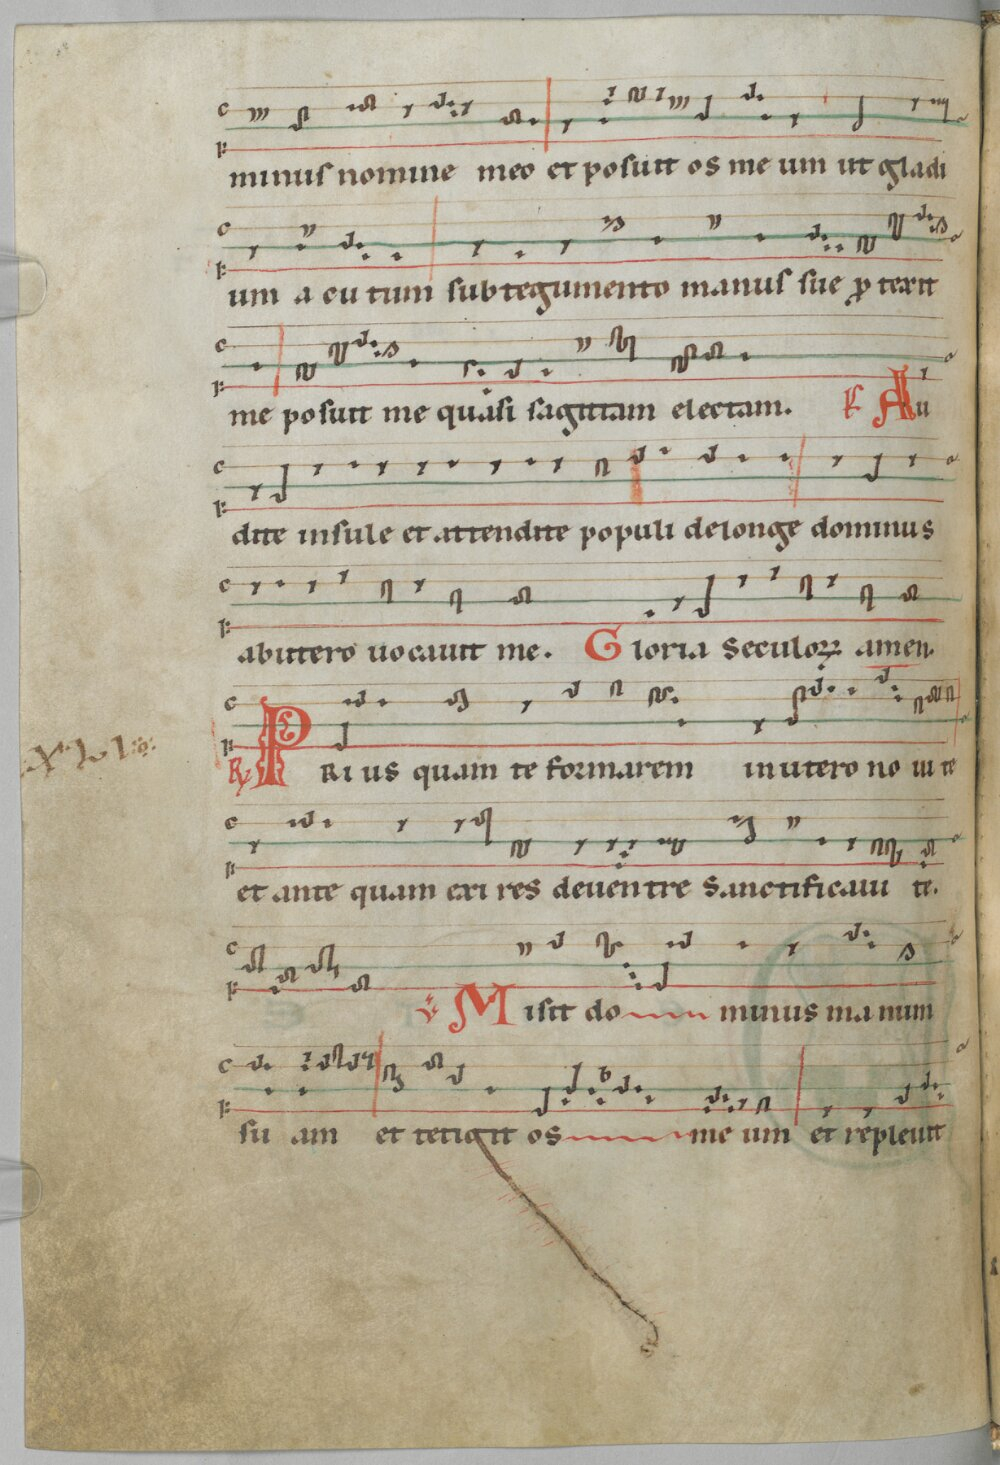 minus nomine meo et posuit os me um ut gladi
um a cu tum sub tegumento manus sue ꝓ texit
me posuit me quasi sagittam electam. Au
dite insule et attendite populi delonge dominus
abutero uocauit me. Gloria seculoꝝ amen.
PRI us quam te formarem inutero no ui te
et ante quam exi res deuentre sanctificaui te.
Misit do minus ma num
su am et tetigit os me um et repleuit